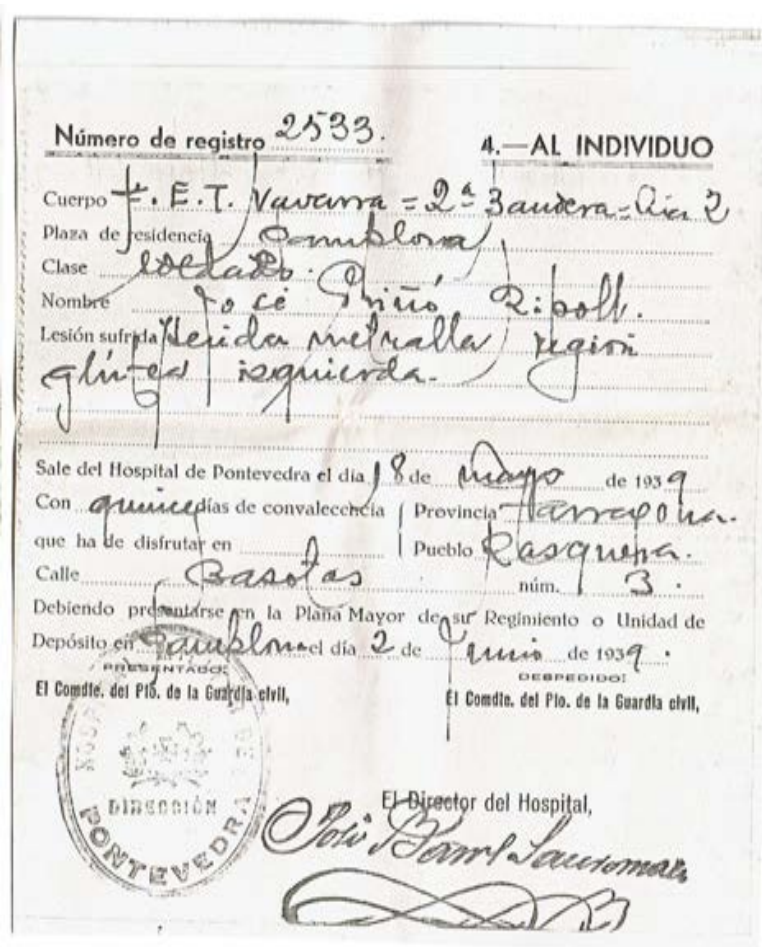 Número de registro 2533.
4.—AL INDIVIDUO
Cuerpo F.E.T. Navarra = 2ª Bandera = Cía 2
Plaza de residencia Pamplona
Clase soldado.
Nombre José Piñó Ripoll.
Lesión sufrida Herida metralla región
glútea izquierda.
Sale del Hospital de Pontevedra el día 18 de mayo de 1939
Con quince días de convalecencia
Provincia Tarragona.
que ha de disfrutar en
Pueblo Rasquera.
Calle Basotas núm. 3.
Debiendo presentarse en la Plana Mayor de su Regimiento o Unidad de
Depósito en Pamplona el día 2 de Junio de 1939.
PRESENTADO:
El Comdte. del Pto. de la Guardia civil,
DESPEDIDO:
El Comdte. del Pto. de la Guardia civil,
El Director del Hospital,
DIRECCIÓN
PONTEVEDRA